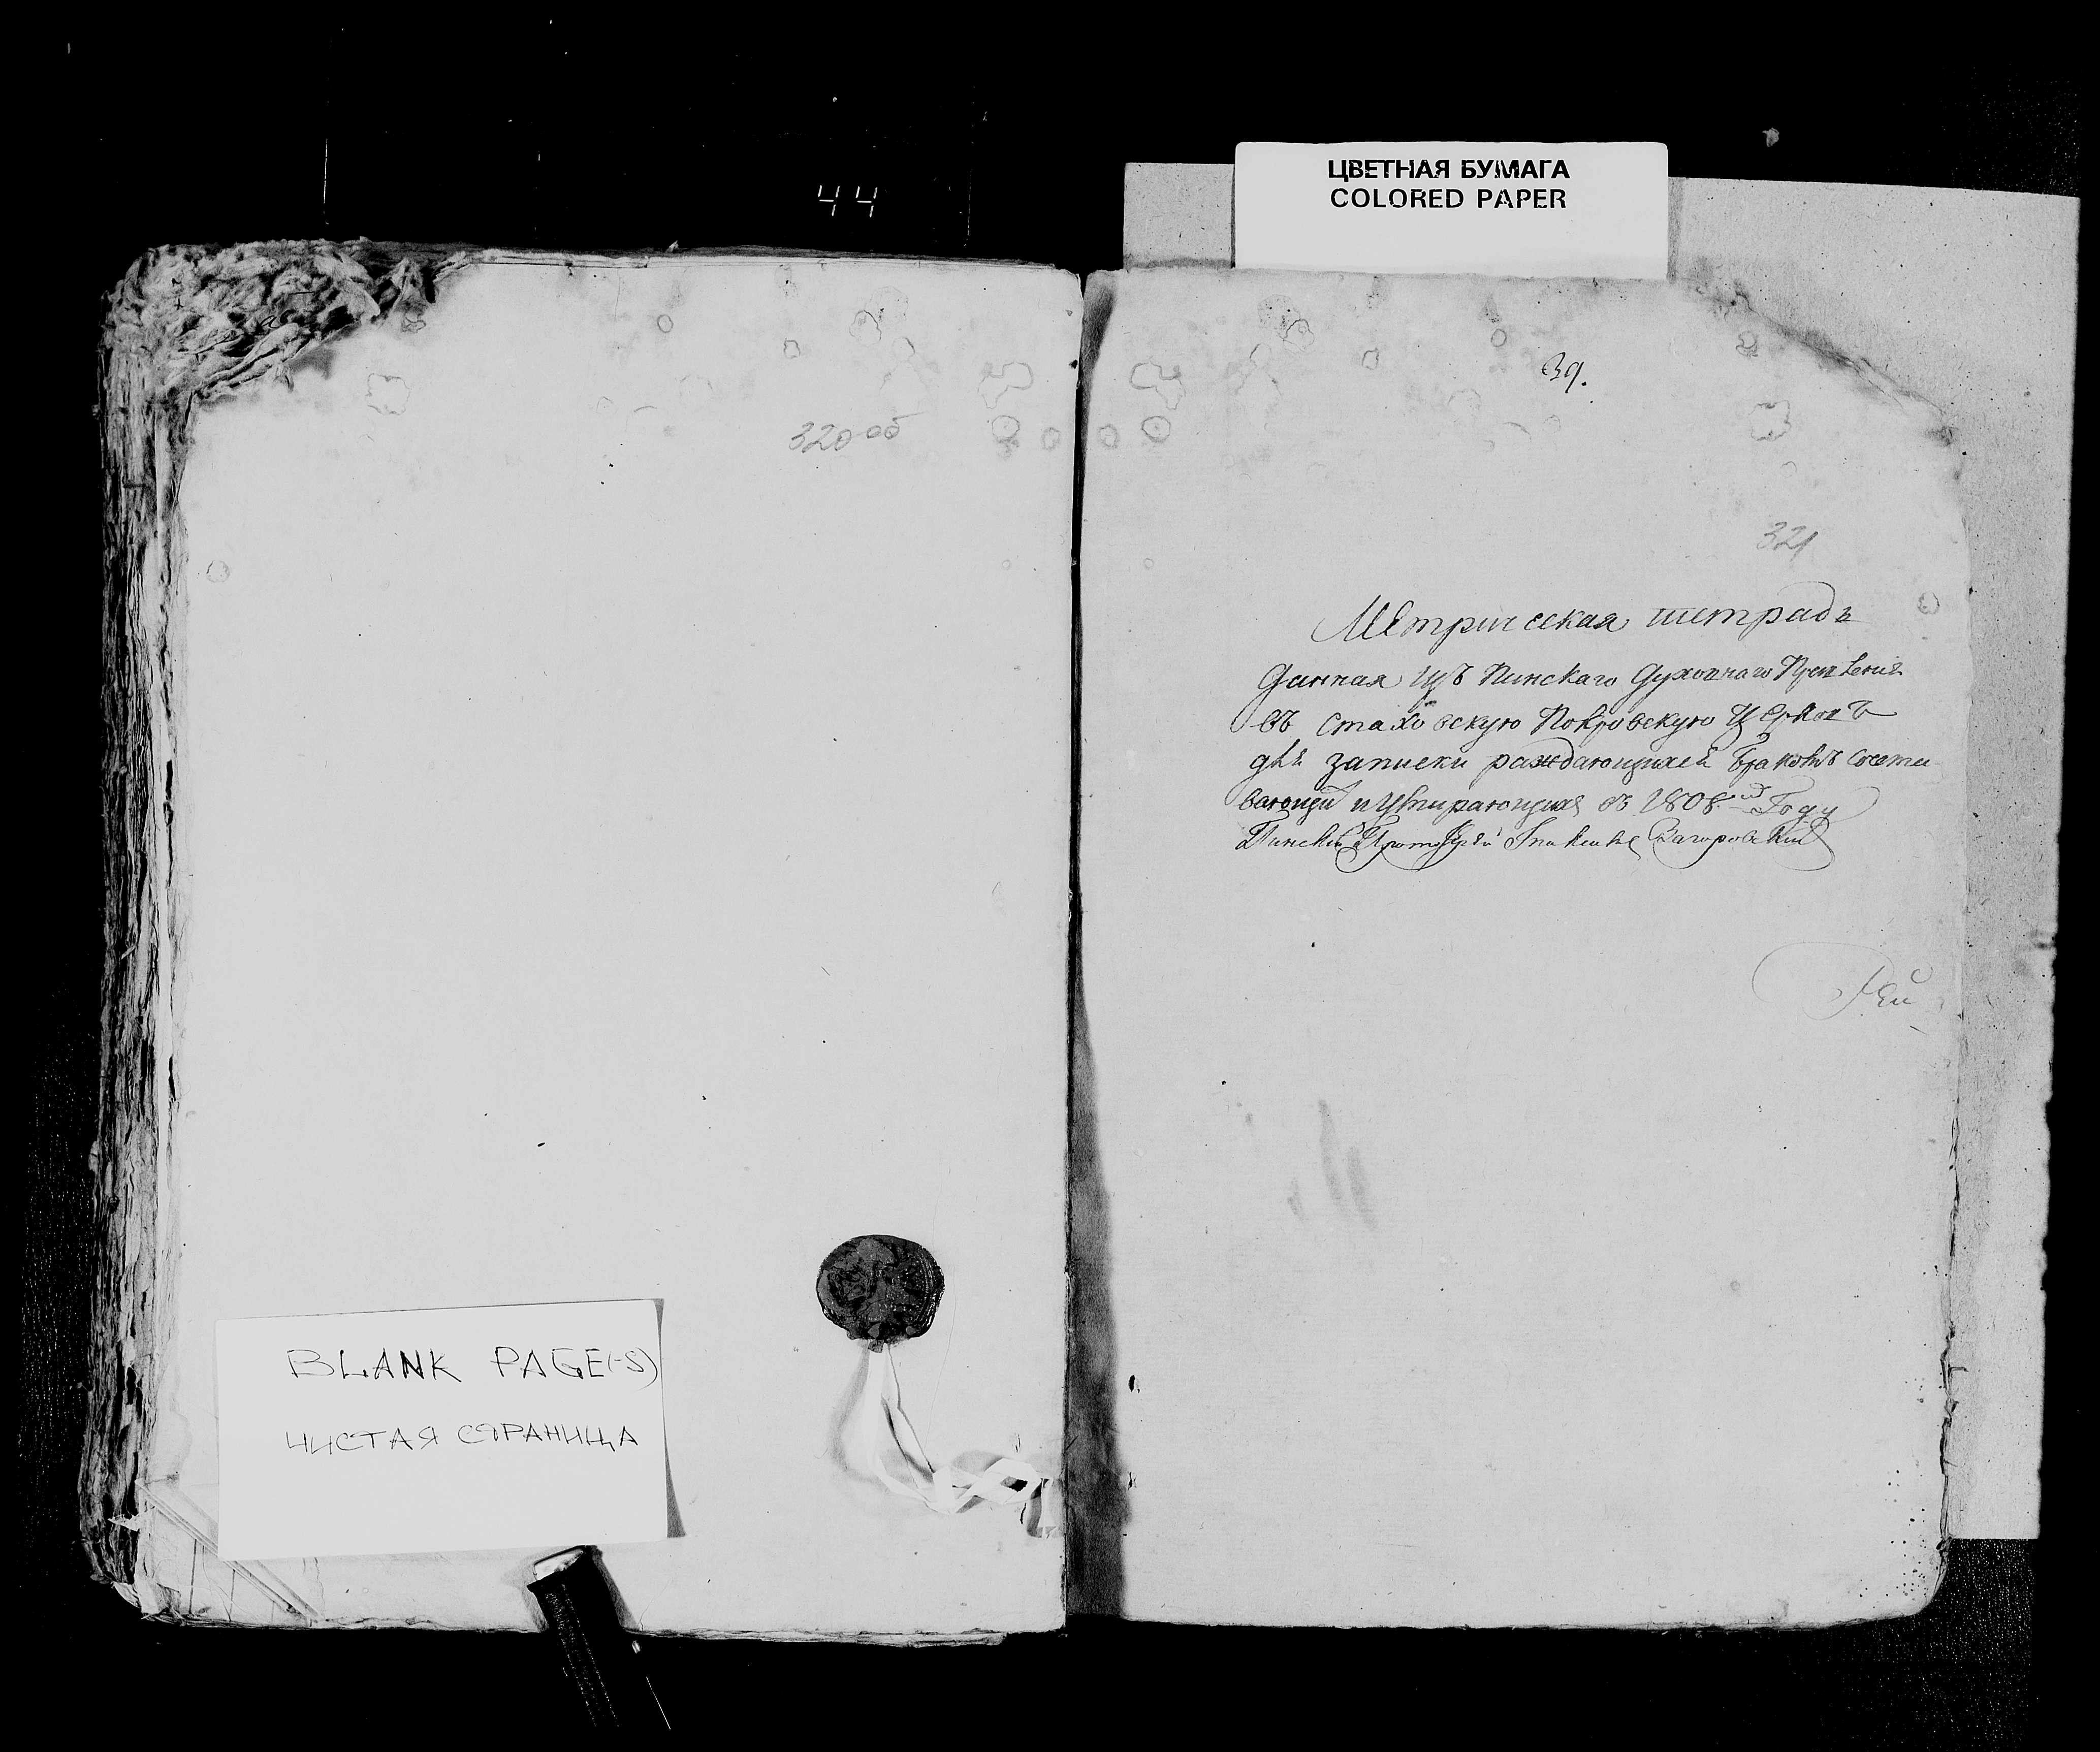 44
ЦВЕТНАЯ БУМАГА
COLORED PAPER
320 об
39.
321
Метрическая тетрадь
данная изъ Пинскаго Духовнаго Правленія
въ Стаховскую Покровскую Церковь
для записки раждающихся браковъ сочета
вающи и умирающихъ въ 1808.м Году
Пинскій Протоіерей Загоровскій
BLANK PAGE(-S)
ЧИСТАЯ СТРАНИЦА